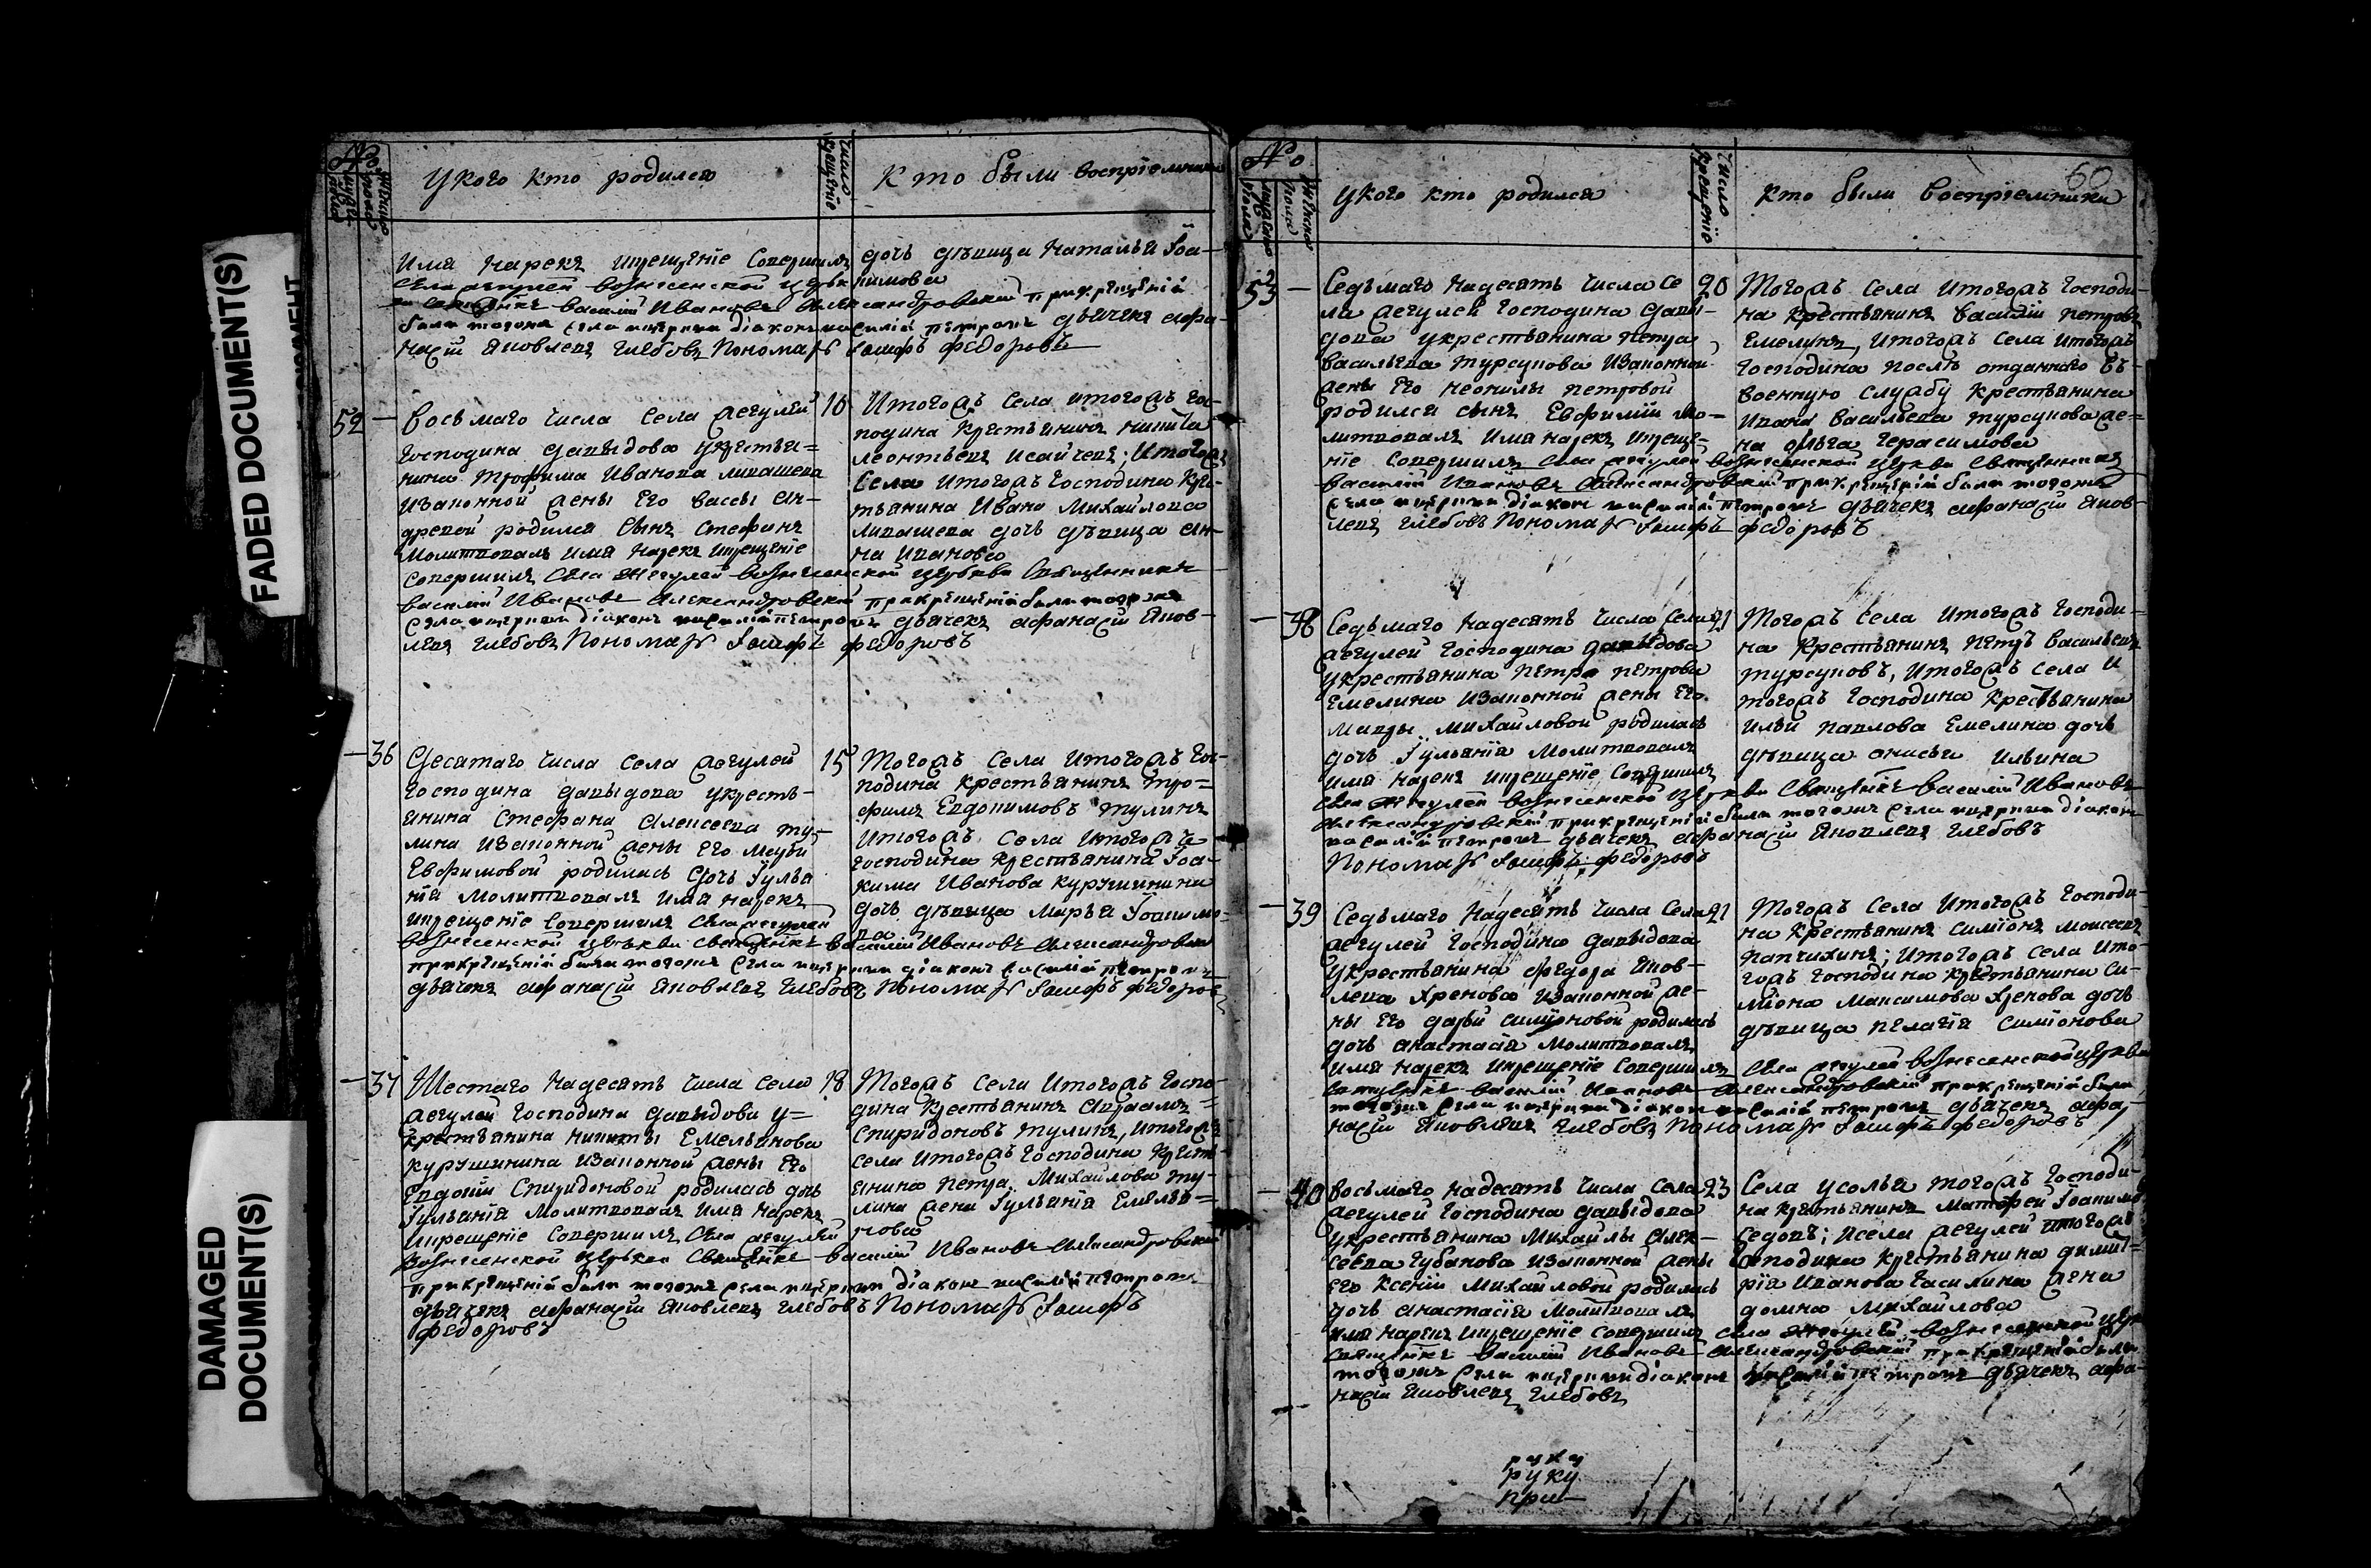 FADED DOCUMENT(S)
DAMAGED
DOCUMENT(S)
№
У кого кто родился
число крещение
Кто были восприемники
имя нарекъ и крещение совершилъ
села Жегулей вознесенской церкви
священникъ василий Ивановъ Александровский при крещении
были тогожъ села и церкви диаконъ василий петровъ дьячекъ афа-
насий Яковлевъ Глебовъ Пономарь Иосифъ Федоровъ
дочь девица Наталья Иоа-
кимова
52
восьмаго числа села Жегулей
господина давыдова у крестья=
нина Трофима Иванова
и законной жены его вассы Ан-
дреевой родился сынъ стефанъ
молитвовалъ имя нарекъ и крещение
совершилъ села Жегулей вознесенской церкви священникъ
василий Ивановъ Александровский при крещении были тогожъ
села и церкви диаконъ василий петровъ дьячекъ афанасий Яков-
левъ Глебовъ Пономарь Иосифъ Федоровъ
10
И тогожъ села и тогожъ гос-
подина крестьянинъ никита
леонтьевъ Исайчевъ; И тогожъ
села и тогожъ господина крес-
тьянина Ивана Михайлова
дочь девица Ан-
на Иванова
36
Десятаго числа села Жегулей
господина давыдова у кресть-
янина Стефана Алексеева ту-
лина и законной жены его
Евфимовой родилась дочь Iулиа
нiя молитвовалъ имя нарекъ
и крещение совершилъ села Жегулей
вознесенской церкви священникъ василий Ивановъ Александровский
при крещении были тогожъ села и церкви диаконъ василий петровъ
дьячекъ афанасий Яковлевъ Глебовъ Пономарь Иосифъ Федоровъ
15
Тогожъ села и тогожъ гос-
подина крестьянинъ Тро=
филъ Евдокимовъ Тулинъ
и тогожъ села и тогожъ
господина крестьянина Иоа-
кима Иванова Курушинина
дочь девица Марья Иоакимо=
ва
37
Шестаго надесять числа села
Жегулей господина давыдова у=
крестьянина никиты Емельянова
Курушинина и законной жены его
Евдокiи Спиридоновой родилась дочь
Iулианiя молитвовалъ имя нарекъ
и крещение совершилъ села Жегулей
вознесенской церкви священникъ василий Ивановъ Александровский
при крещении были тогожъ села и церкви диаконъ василий петровъ
дьячекъ афанасий Яковлевъ Глебовъ Пономарь Иосифъ
Федоровъ
18
Тогожъ села и тогожъ госпо-
дина крестьянинъ Авраамъ=
Спиридоновъ тулинъ, и тогожъ
села и тогожъ господина кресть-
янина петра Михайлова ту-
лина жена Iулианiя Емелья=
нова
60
№
У кого кто родился
число крещение
Кто были восприемники
53
Седьмаго надесять числа се
ла Жегулей господина давы-
дова у крестьянина петра
васильева турсукова и законной
жены его неонилы петровой
родился сынъ Евфимий мо-
литвовалъ имя нарекъ и креще-
ние совершилъ села Жегулей вознесенской церкви священникъ
василий Ивановъ Александровский при крещении были тогожъ
села и церкви диаконъ василий петровъ дьячекъ афанасий Яков-
левъ Глебовъ Пономарь Иосифъ Федоровъ
20
Тогожъ села и тогожъ господи-
на крестьянинъ василий петровъ
Емелинъ, и тогожъ села и тогожъ
господина после отданнаго въ
военную службу крестьянина
Ивана васильева турсукова же=
на ольга герасимова
38
Седьмаго надесять числа села
Жегулей господина давыдова
у крестьянина петра петрова
Емелина и законной жены его
мавры михайловой родилась
дочь Iулианiя молитвовалъ
имя нарекъ и крещение совершилъ
села Жегулей вознесенской церкви священникъ василий Ивановъ
Александровский при крещении были тогожъ села и церкви диаконъ
василий петровъ дьячекъ афанасий Яковлевъ Глебовъ
Пономарь Иосифъ Федоровъ
21
Тогожъ села и тогожъ господи-
на крестьянинъ петръ васильевъ
турсуковъ, и тогожъ села и
тогожъ господина крестьянина
ильи павлова Емелина дочь
девица анисья ильина
39
Седьмаго надесять числа села
Жегулей господина давыдова
у крестьянина федора Яков-
лева хренова и законной же-
ны его дарьи симiоновой родилась
дочь анастасiя молитвовалъ
имя нарекъ и крещение совершилъ села Жегулей вознесенской церкви
священникъ василий Ивановъ Александровский при крещении были
тогожъ села и церкви диаконъ василий петровъ дьячекъ афа-
насий Яковлевъ Глебовъ Пономарь Иосифъ Федоровъ
21
Тогожъ села и тогожъ господи-
на крестьянинъ симiонъ моисеевъ
и тогожъ села и то-
гожъ господина крестьянина си-
мiона Максимова хренова дочь
девица пелагiя симiонова
40
Восьмаго надесять числа села
Жегулей господина давыдова
у крестьянина михайлы Алек-
сеева Губанова и законной жены
его ксенiи михайловой родилась
дочь анастасiя молитвовалъ
имя нарекъ и крещение совершилъ села Жегулей вознесенской церк
священникъ василий Ивановъ Александровский при крещении были
тогожъ села и церкви диаконъ василий петровъ дьячекъ афа-
насий Яковлевъ Глебовъ
23
Села усолья тогожъ господи-
на крестьянинъ Матфей Иоакимо
седовъ; и села Жегулей и тогожъ
господина крестьянина димит=
рiя иванова жена
домна михайлова
руку
руку
при-